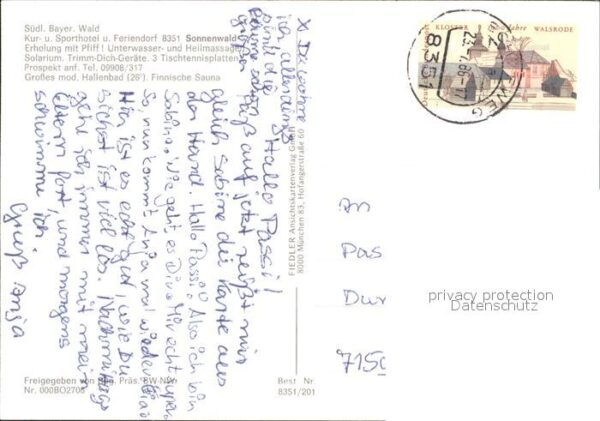 Südl. Bayer. Wald
Kur- u. Sporthotel u. Feriendorf 8351 Sonnenwald
Erholung mit Pfiff! Unterwasser- und Heilmassage
Solarium. Trimm-Dich-Geräte. 3 Tischtennisplatten
Prospekt anf. Tel. 09908/317
Großes mod. Hallenbad (26°). Finnische Sauna
KLOSTER WALSRODE
8351
23.7.86-17
Hallo Passi!
auf jetzt reißt mir
gleich Sabine die Karte aus
der Hand. Hallo Passi! Also ich bin
Sabine. Wie geht es Dir? Mir echt super.
So nun kommt Anja mal wieder dran
Hier ist es echt gut, wie Du
siehst ist viel los. Nachmittags
gehe ich immer mit mei-
Eltern fort, und morgens
schwimme ich.
Gruß Anja
FIEDLER Ansichtskartenverlag GmbH
8000 München 83, Hofangerstraße 60
An
Pas
Dur
7150
privacy protection
Datenschutz
Freigegeben von Reg. Präs.
Nr. 000BO2706
Best Nr
8351/201